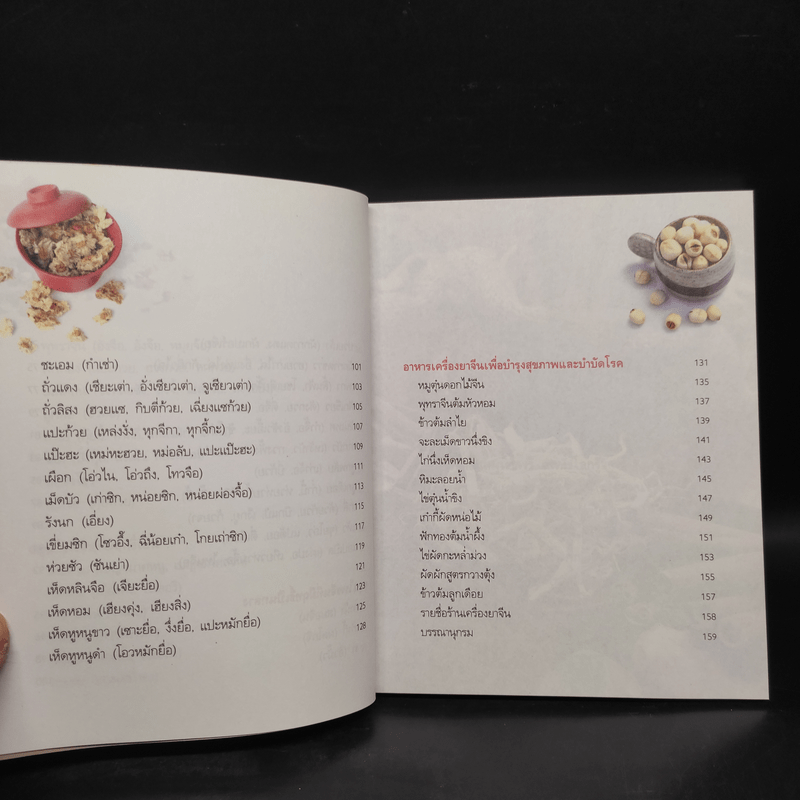 ชะเอม (กำเช่า) 101
ถั่วแดง (เซียะเต่า, อั่งเซียวเต่า, จูเซียวเต่า) 103
ถั่วลิสง (ฮวยแซ, กิบตี่ก้วย, เฉี่ยงแซก้วย) 105
แปะก้วย (เหล่งงั่ง, หุกจีกา, หุกจี้กะ) 107
แป๊ะฮะ (เหม่หะฮวย, หม่อลับ, แปะแป๊ะฮะ) 109
เผือก (โอ่วไน, โอ่วถึง, โทวจือ) 111
เม็ดบัว (เก่าซิก, หน่อยซิก, หน่อยผ่องจื้อ) 113
รังนก (เอี่ยง) 115
เขี่ยมซิก (โซวอึ๊ง, ฉี่น้อยเก๋า, โกยเถ่าซิก) 117
ห่วยซัว (ซันเย่า) 119
เห็ดหลินจือ (เจียะยื่อ) 121
เห็ดหอม (เฮียงคุ่ง, เฮียงสิ่ง) 123
เห็ดหูหนูขาว (เซาะยื่อ, งึ่งยื่อ, แปะหมักยื่อ) 125
เห็ดหูหนูดำ (โอวหมักยื่อ) 128
อาหารเครื่องยาจีนเพื่อบำรุงสุขภาพและบำบัดโรค 131
หมูตุ๋นดอกไม้จีน 135
พุทราจีนต้มหัวหอม 137
ข้าวต้มลำไย 139
จะละเม็ดขาวนึ่งขิง 141
ไก่นึ่งเห็ดหอม 143
หิมะลอยน้ำ 145
ไข่ตุ๋นน้ำขิง 147
เก๋ากี้ผัดหน่อไม้ 149
ฟักทองต้มน้ำผึ้ง 151
ไข่ผัดกะหล่ำม่วง 153
ผัดผักสูตรกวางตุ้ง 155
ข้าวต้มลูกเดือย 157
รายชื่อร้านเครื่องยาจีน 158
บรรณานุกรม 159